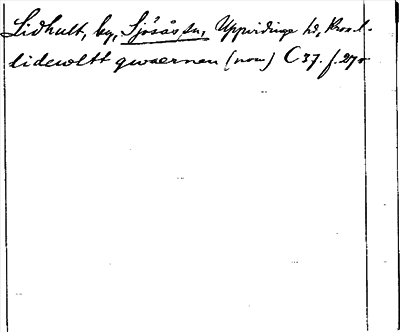 Lidhult, by, Sjösås sn, Uppvidinge hd, Kron. l.
lidewltt qwaernen (nom) C 37. f. 27v